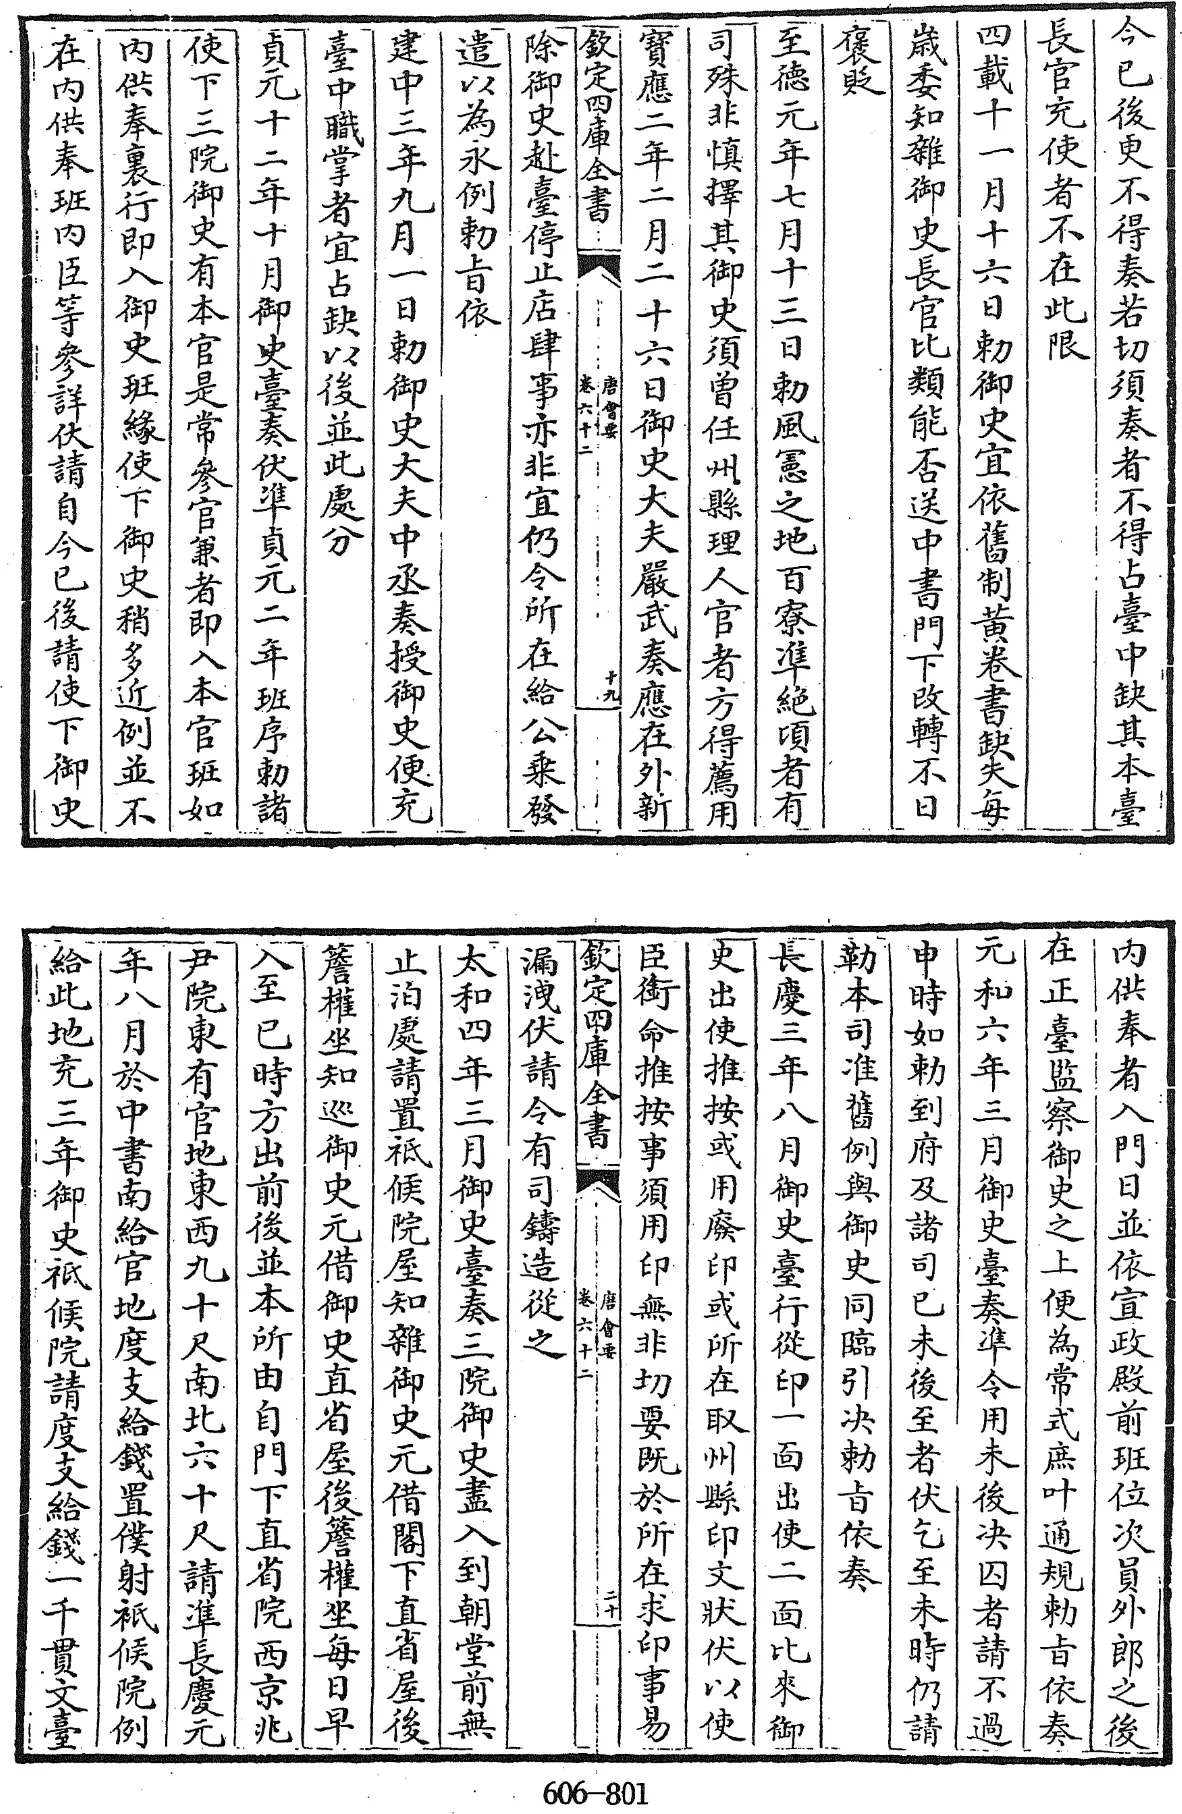 今已後更不得奏若切須奏者不得占臺中缺其本臺
長官充使者不在此限
四載十一月十六日勅御史宜依舊制黃卷書缺失每
歳委知雜御史長官比類能否送中書門下改轉不日
襃貶
至德元年七月十三日勅風憲之地百寮準絶項者有
司殊非慎擇其御史須曾任州縣理人官者方得薦用
寶應二年二月二十六日御史大夫嚴武奏應在外新
欽定四庫全書
唐會要
卷六十二
十九
除御史赴臺停止店肆事亦非宜仍令所在給公乗發
遣以為永例勅旨依
建中三年九月一日勅御史大夫中丞奏授御史便充
臺中職掌者宜占缺以後並此處分
貞元十二年十月御史臺奏伏準貞元二年班序勅諸
使下三院御史有本官是常參官兼者即入本官班如
内供奉裏行即入御史班緣使下御史稍多近例並不
在内供奉班内臣等參詳伏請自今已後請使下御史
内供奉者入門日並依宣政殿前班位次員外郎之後
在正臺監察御史之上便為常式庶叶通規勅旨依奏
元和六年三月御史臺奏準令用未後决囚者請不過
申時如勅到府及諸司已未後至者伏乞至未時仍請
勒本司准舊例與御史同臨引决勅旨依奏
長慶三年八月御史臺行從印一面出使二面比來御
史出使推按或用廢印或所在取州縣印文狀伏以使
臣銜命推按事須用印無非切要既於所在求印事易
欽定四庫全書
唐會要
卷六十二
二十
漏洩伏請令有司鑄造從之
太和四年三月御史臺奏三院御史盡入到朝堂前無
止泊處請置祗候院屋知雜御史元借閤下直省屋後
簷權坐知巡御史元借御史直省屋後簷權坐每日早
入至已時方出前後並本所由自門下直省院西京兆
尹院東有官地東西九十尺南北六十尺請準長慶元
年八月於中書南給官地度支給錢置僕射祗候院例
給此地充三年御史祗候院請度支給錢一千貫文臺
606-801